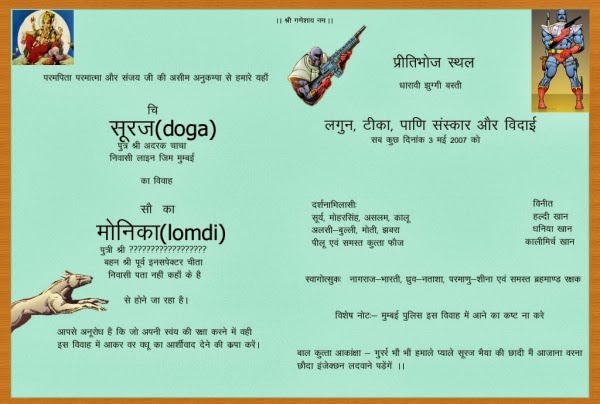 ।। श्री गणेशाय नम ।।
परमपिता परमात्मा और संजय जी की असीम अनुकम्पा से हमारे यहाँ
चि
सूरज(doga)
पुत्र श्री अदरक चाचा
निवासी लाइन जिम मुम्बई
का विवाह
सौ का
मोनिका(lomdi)
पुत्री श्री ??????????????????
बहन श्री पूर्व इनसपेक्टर चीता
निवासी पता नहीं कहाँ के है
से होने जा रहा है।
आपसे अनूरोध है कि जो अपनी स्वंय की रक्षा करने में वही
इस विवाह में आकर वर वधू का आर्शीवाद देने की कृपा करें।
प्रीतिभोज स्थल
धारावी झुग्गी बस्ती
लगुन, टीका, पाणि संस्कार और विदाई
सब कुछ दिनांक 3 मई 2007 को
दर्शनाभिलासीः
सूर्य, मोहरसिंह, असलम, कालू
अलसी–बुल्ली, मोती, झबरा
पीलू एवं समस्त कुत्ता फौज
विनीत
हल्दी खान
धनिया खान
कालीमिर्च खान
स्वागोत्सुकः नागराज–भारती, ध्रुव–नताशा, परमाणु–शीना एवं समस्त ब्रहमाण्ड रक्षक
विशेष नोटः– मुम्बई पुलिस इस विवाह में आने का कष्ट ना करे
बाल कुत्ता आकांक्षा – गुरर्र भौं भौं हमाले प्याले सूरज भैया की छादी मैं आजाना वरना
छौदा इंजेक्छन लदवाने पड़ेंगें ।।